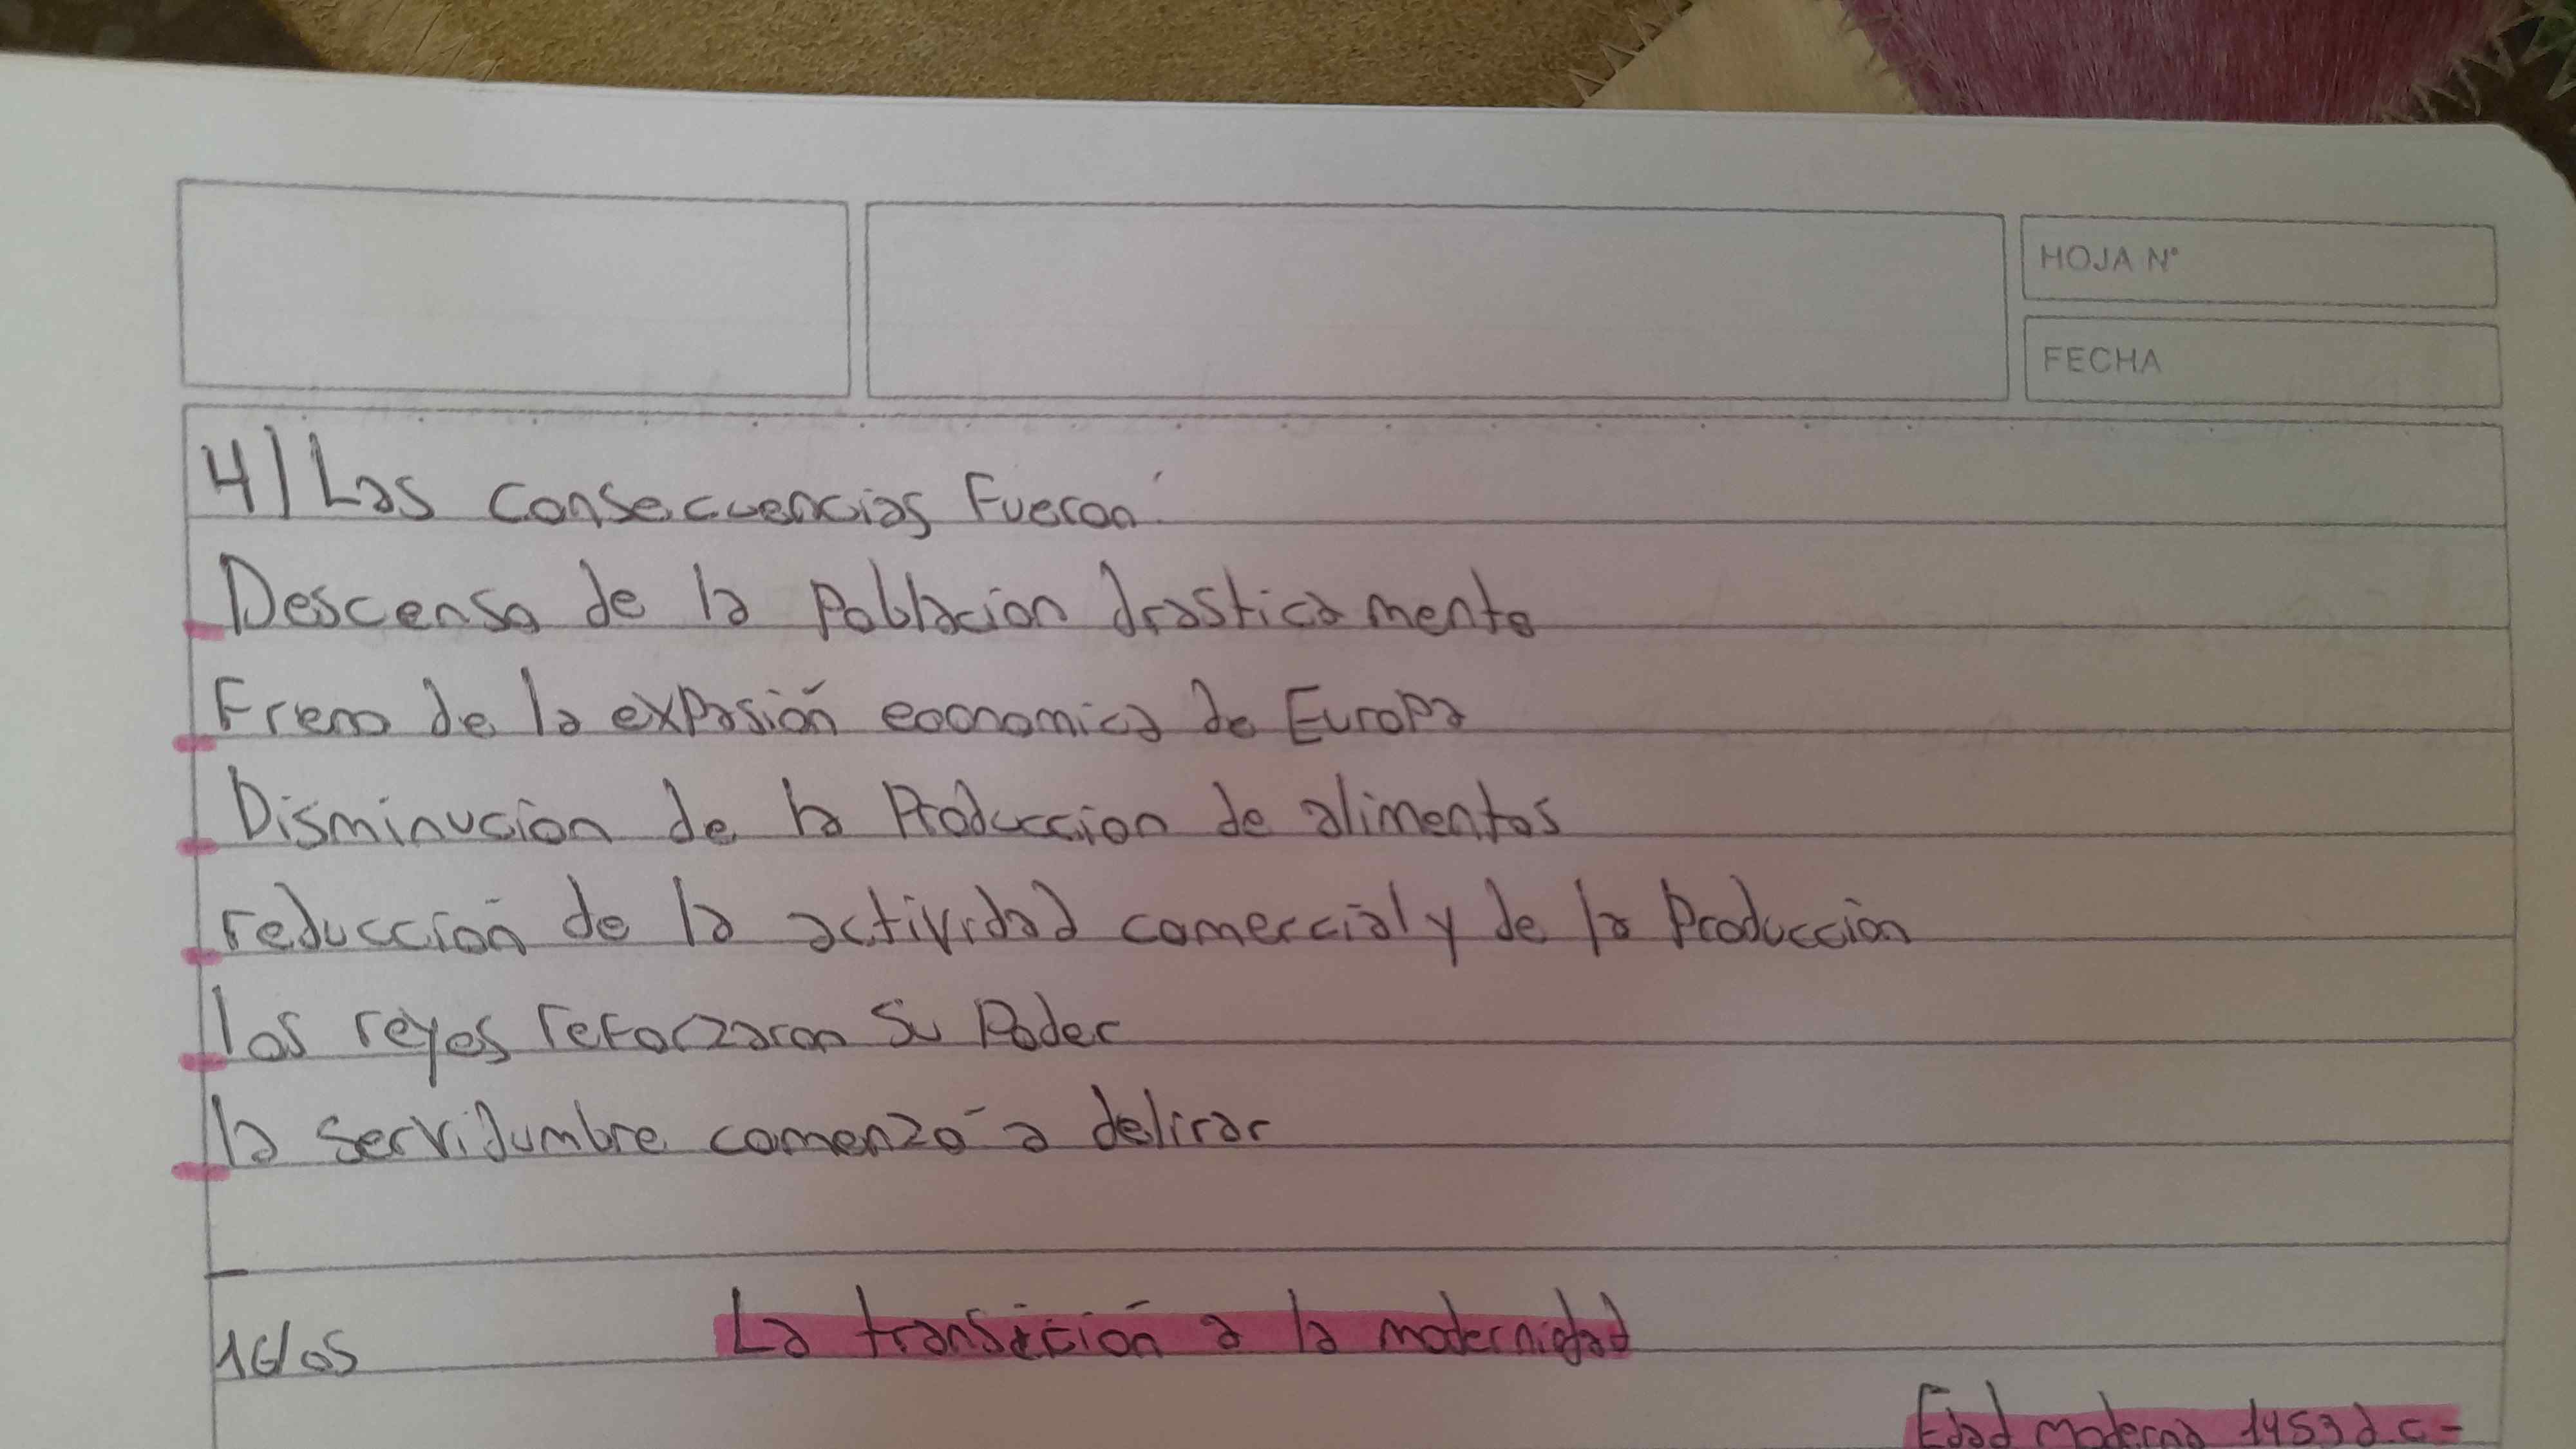 HOJA N°
FECHA
4) Las consecuencias Fueron:
Descenso de la Poblacion drasticamente
Freno de la expasión economica de Europa
Disminucion de la Produccion de alimentos
reducción de la actividad comercial y de la Producción
los reyes reforzaron su Poder
la servidumbre comenzó a delirar
16/05 La transición a la modernidad
Edad moderna 1453 d.c-